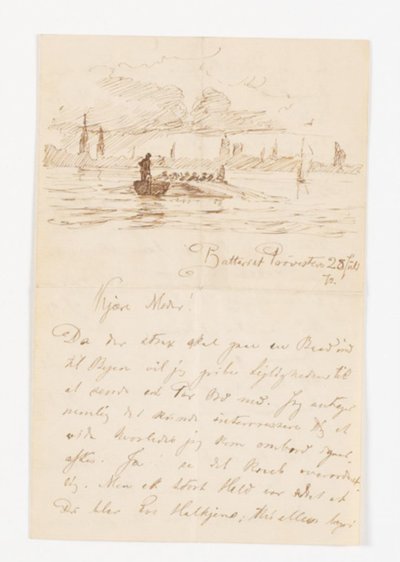 Batteriet Prövesten 28 Juli
72.
Kjære Meder!
Da der strax skal gaa en Baad ind
til Byen vil jeg gribe Lejligheden til
at sende et Par Ord med. Jeg antager
nemlig det kunde interessere Dig at
vide hvorledes jeg kom ombord igaar
aftes. Ja det
Dig. Men et stort Held var det at
Du blev Halvejens, thi ellers